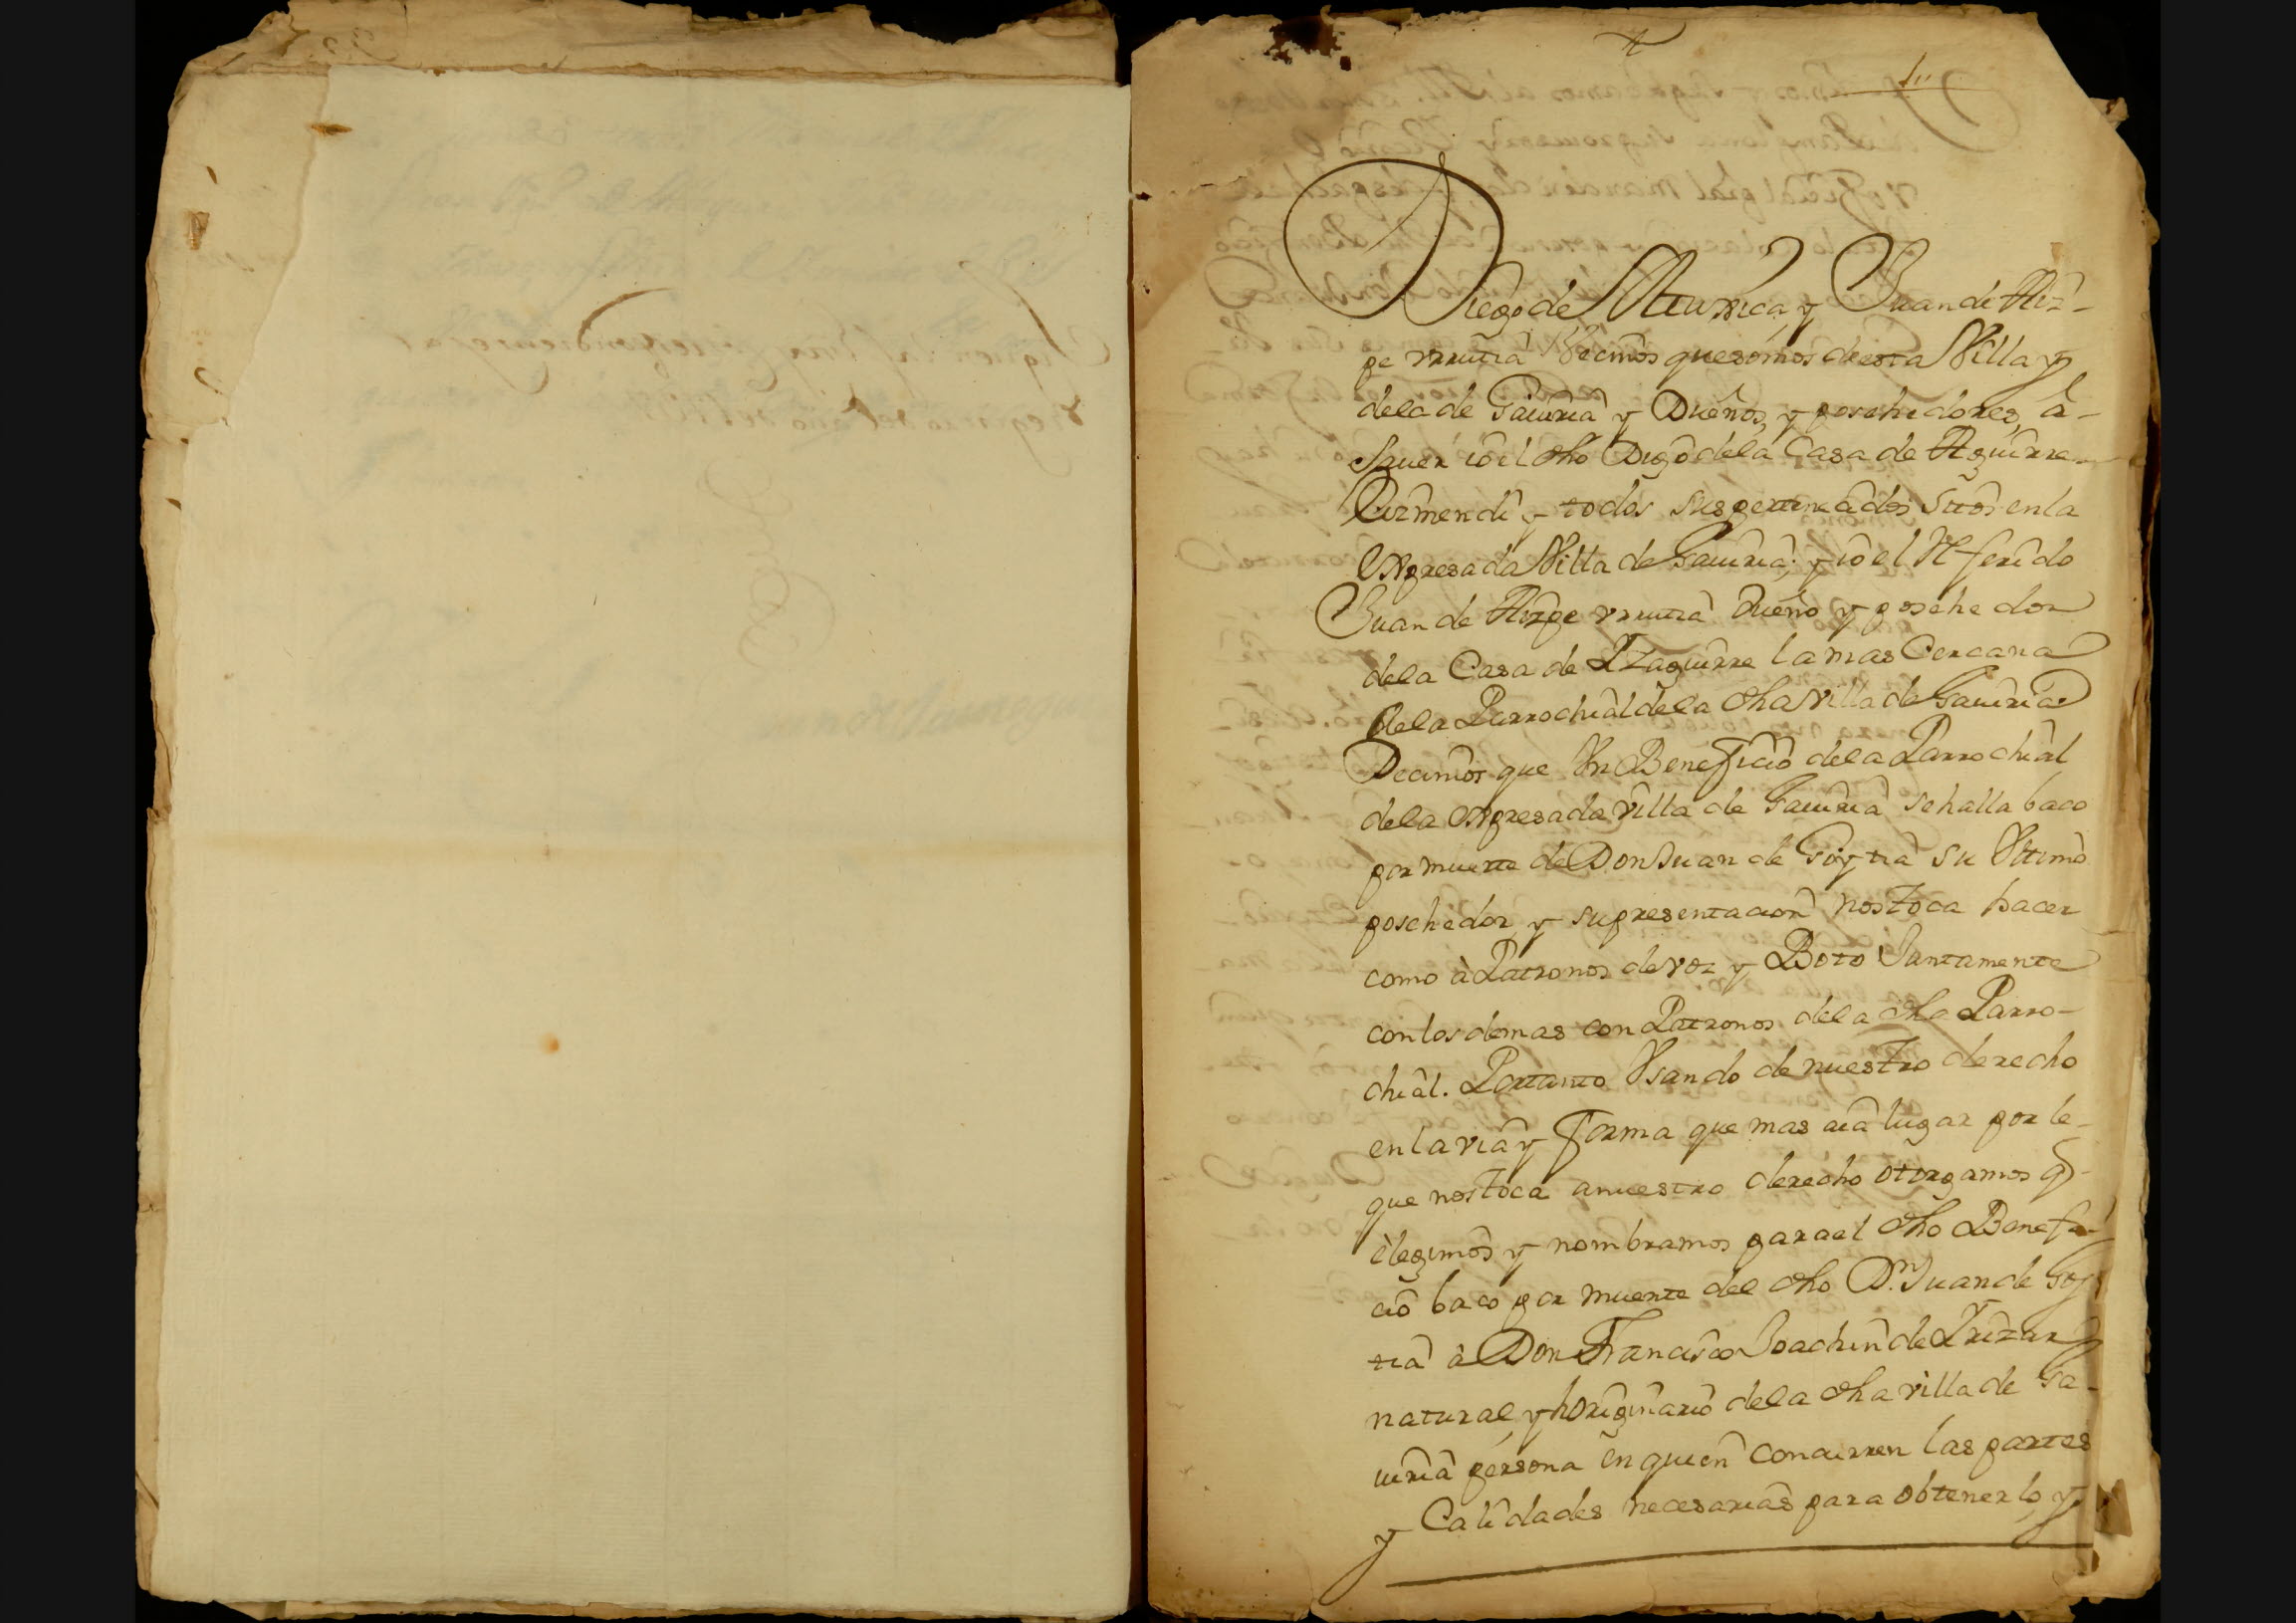 Diego de Aturrica, y Juan de Aiz-
pe vrrutia Vecinos que somos de esta Villa y
de la de Gauiria y Dueños, y poschedores, à-
Sauer io el dho Diego de la Casa de Aguirre
Eizmendi y todos sus pertenecidos sitos en la
Expresada Villa de Gauiria; y io el Referido
Juan de Aizpe vrrutia Dueño y poschedor
de la Casa de Yzaguirre la mas Cercana
de la Parrochial de la dha Villa de Gauiria
Decimos que Vn Beneficio de la Parrochial
de la Expresada villa de Gauiria se halla baco
por muerte de Don Juan de Goytia su Vltimo
poschedor, y su presentacion nos toca hacer
como à Patronos de voz y Boto Juntamente
con los demas con Patronos de la dha Parro-
chial. Portanto Vsando de nuestro derecho
en la via y forma que mas aia lugar por le-
que nos toca a nuestro derecho otorgamos q-
elegimos y nombramos para el dho Benefi-
cio baco por muerte del dho Dn. Juan de Goy
tia à Don Francisco Joachin de Yrizar
natural, y horiginario de la dha villa de Ga-
uiria persona en quien concurren las partes
y Calidades necesarias para obtenerlo, y